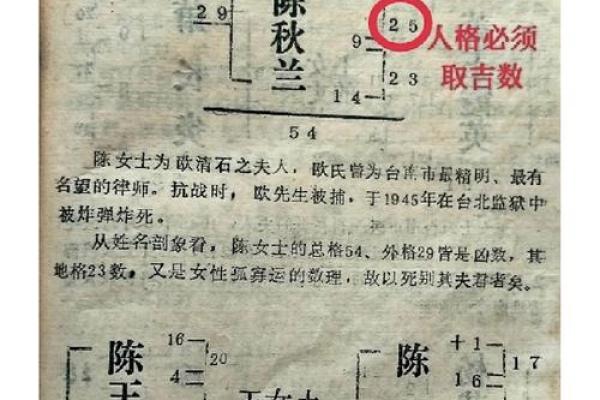 29
陈秋兰
25
9
23
14
54
人格必须
取吉数
陈女士为欧清石之夫人，欧氏曾为台南市最精明、最有
名望的律师。抗战时，欧先生被捕，于1945年在台北监狱中
被炸弹炸死。
从姓名剖象看，陈女士的总格54、外格29皆是凶数，其
地格23数，又是女性孤寡运的数理，故以死别其夫君者矣。
陈
16
4
20
陈
十1
16
17